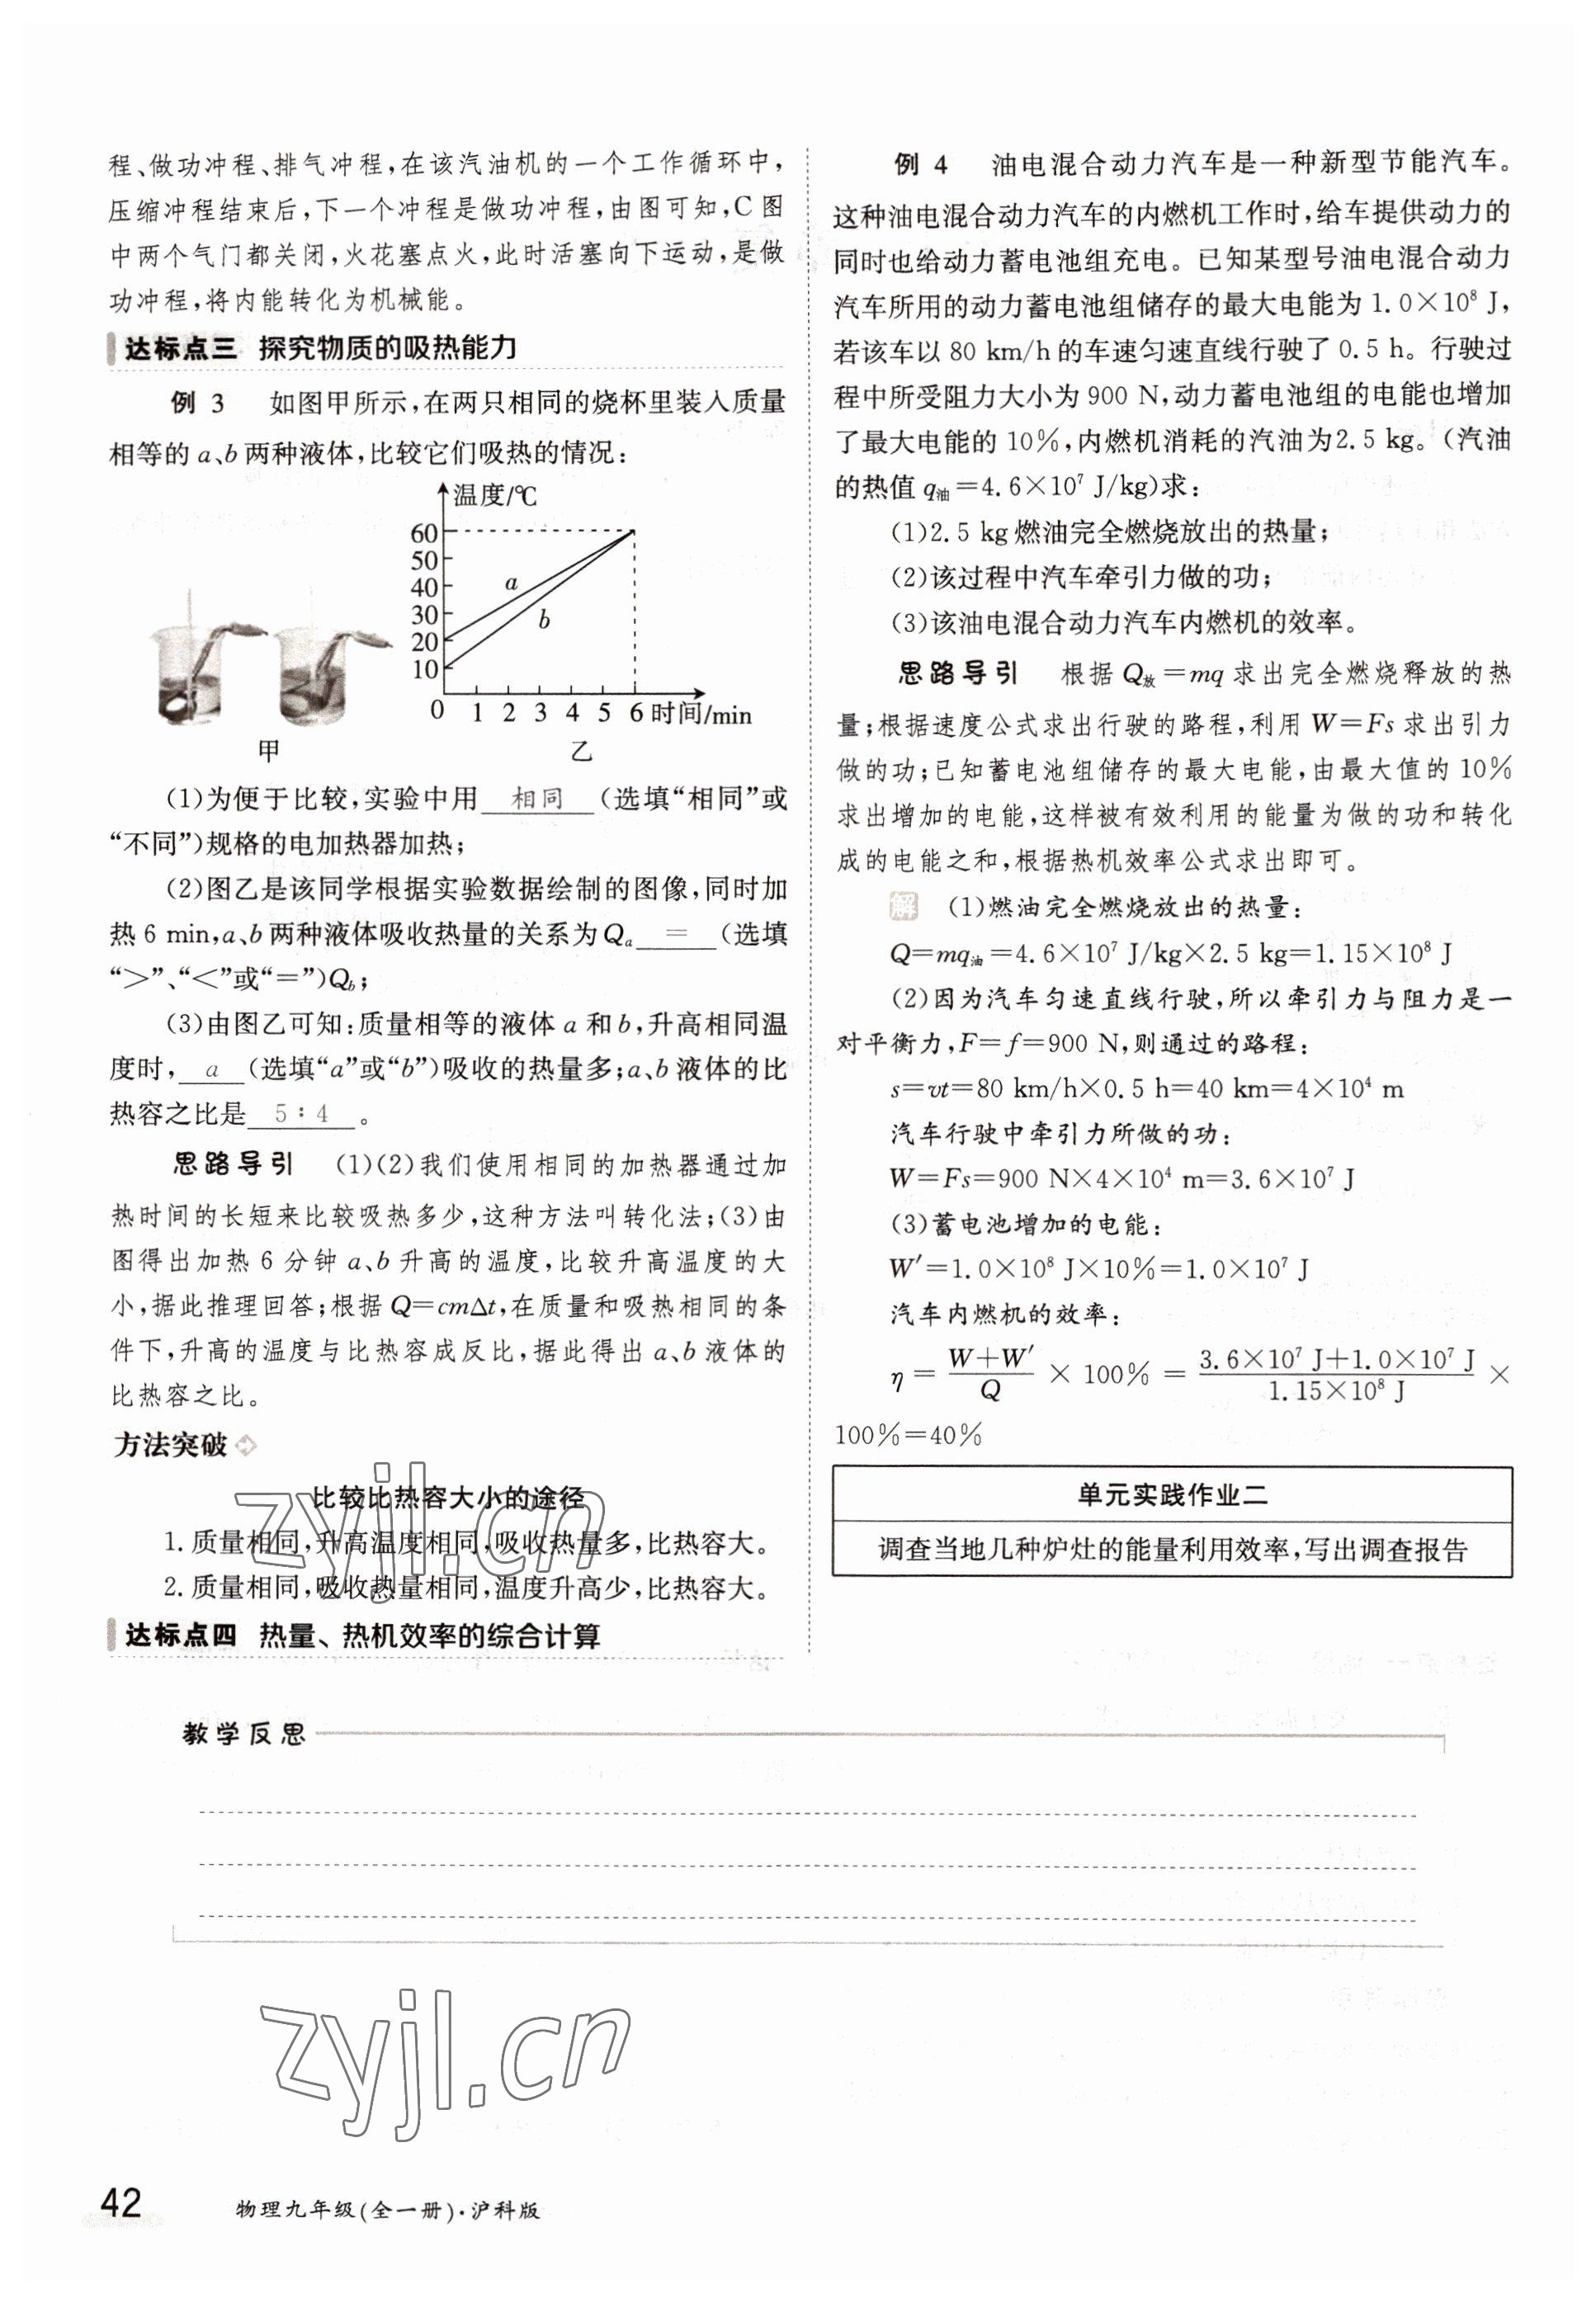 程、做功冲程、排气冲程,在该汽油机的一个工作循环中,
压缩冲程结束后,下一个冲程是做功冲程,由图可知,C图
中两个气门都关闭,火花塞点火,此时活塞向下运动,是做
功冲程,将内能转化为机械能。
达标点三 探究物质的吸热能力
例 3 如图甲所示,在两只相同的烧杯里装入质量
相等的 a、b 两种液体,比较它们吸热的情况:
温度/℃
60
50
40
30
20
10
a
b
0 1 2 3 4 5 6 时间/min
甲 乙
(1)为便于比较,实验中用 相同 (选填“相同”或
“不同”)规格的电加热器加热;
(2)图乙是该同学根据实验数据绘制的图像,同时加
热 6 min,a、b 两种液体吸收热量的关系为Qₐ = (选填
“>”、“<”或“=”)Q_b;
(3)由图乙可知:质量相等的液体 a 和 b,升高相同温
度时, a (选填“a”或“b”)吸收的热量多;a、b 液体的比
热容之比是 5∶4 。
思路导引 (1)(2)我们使用相同的加热器通过加
热时间的长短来比较吸热多少,这种方法叫转化法;(3)由
图得出加热 6 分钟 a、b 升高的温度,比较升高温度的大
小,据此推理回答;根据 Q=cmΔt,在质量和吸热相同的条
件下,升高的温度与比热容成反比,据此得出 a、b 液体的
比热容之比。
方法突破
比较比热容大小的途径
1. 质量相同,升高温度相同,吸收热量多,比热容大。
2. 质量相同,吸收热量相同,温度升高少,比热容大。
达标点四 热量、热机效率的综合计算
例 4 油电混合动力汽车是一种新型节能汽车。
这种油电混合动力汽车的内燃机工作时,给车提供动力的
同时也给动力蓄电池组充电。已知某型号油电混合动力
汽车所用的动力蓄电池组储存的最大电能为 1.0×10⁸ J,
若该车以 80 km/h 的车速匀速直线行驶了 0.5 h。行驶过
程中所受阻力大小为 900 N,动力蓄电池组的电能也增加
了最大电能的 10%,内燃机消耗的汽油为2.5 kg。(汽油
的热值 q油=4.6×10⁷ J/kg)求:
(1)2.5 kg 燃油完全燃烧放出的热量;
(2)该过程中汽车牵引力做的功;
(3)该油电混合动力汽车内燃机的效率。
思路导引 根据 Q放=mq 求出完全燃烧释放的热
量;根据速度公式求出行驶的路程,利用 W=Fs 求出引力
做的功;已知蓄电池组储存的最大电能,由最大值的 10%
求出增加的电能,这样被有效利用的能量为做的功和转化
成的电能之和,根据热机效率公式求出即可。
解 (1)燃油完全燃烧放出的热量:
Q=mq油=4.6×10⁷ J/kg×2.5 kg=1.15×10⁸ J
(2)因为汽车匀速直线行驶,所以牵引力与阻力是一
对平衡力,F=f=900 N,则通过的路程:
s=vt=80 km/h×0.5 h=40 km=4×10⁴ m
汽车行驶中牵引力所做的功:
W=Fs=900 N×4×10⁴ m=3.6×10⁷ J
(3)蓄电池增加的电能:
W′=1.0×10⁸ J×10%=1.0×10⁷ J
汽车内燃机的效率:
η=(W+W′)/Q×100%=(3.6×10⁷ J+1.0×10⁷ J)/(1.15×10⁸ J)×
100%=40%
单元实践作业二
调查当地几种炉灶的能量利用效率,写出调查报告
教学反思
zyjl.cn
zyjl.cn
42 物理九年级(全一册)·沪科版